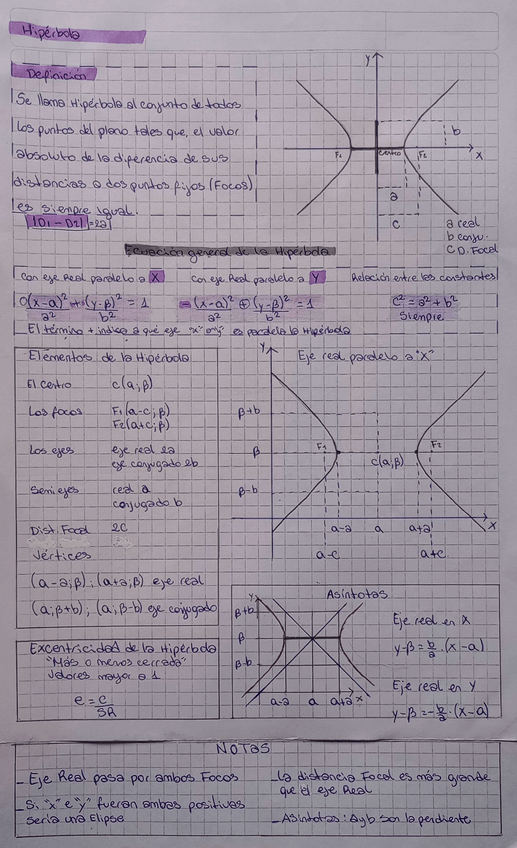 Hipérbola
Definición
Se llama Hipérbola al conjunto de todos
los puntos del plano tales que, el valor
absoluto de la diferencia de sus
distancias a dos puntos fijos (Focos)
es siempre igual.
|D1 - D2| = 2a
y
F1
centro
F2
b
x
a
c
a real
b conju.
C D. Focal
Ecuación general de la Hipérbola
Con eje Real paralelo a X
Con eje Real paralelo a Y
Relación entre las constantes
(x-α)²/a² - (y-β)²/b² = 1
- (x-α)²/a² ⊕ (y-β)²/b² = 1
c² = a² + b²
Siempre
El término + indica a qué eje "x" o "y" es paralela la Hipérbola
Elementos de la Hipérbola
El Centro c(α;β)
Los focos F1(α-c;β)
F2(α+c;β)
Los ejes eje real 2a
eje conjugado 2b
Semi ejes real a
conjugado b
Dist. Focal 2C
Vértices
(α-a;β);(α+a;β) eje real
(α;β+b);(α;β-b) eje conjugado
Eje real paralelo a "x"
y
β+b
β
β-b
F1
F2
c(α;β)
α-a
α
α+a
x
α-c
α+c
Excentricidad de la Hipérbola
"Más o menos cerrada"
Valores mayor a 1
e = c/SR
Asíntotas
y
β+b
β
β-b
α-a
α
α+a
x
Eje real en X
y-β = b/a · (x-α)
Eje real en Y
y-β = -b/a · (x-α)
NOTAS
- Eje Real pasa por ambos Focos
- Si "x" e "y" fueran ambas positivas
seria una Elipse
- la distancia Focal es más grande
que el eje Real
- Asíntotas: a y b son la pendiente